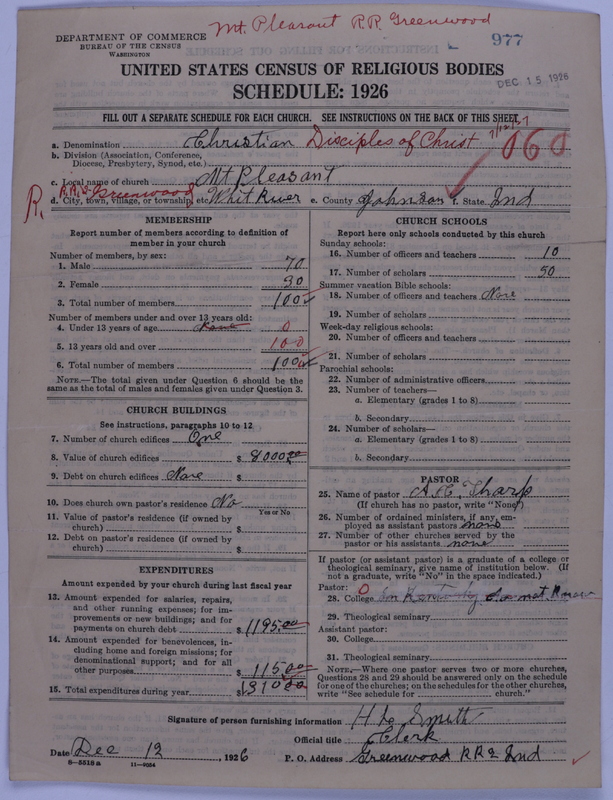 Mt. Pleasant R.R. Greenwood
DEPARTMENT OF COMMERCE
BUREAU OF THE CENSUS
WASHINGTON
977
UNITED STATES CENSUS OF RELIGIOUS BODIES
DEC 15 1926
SCHEDULE: 1926
FILL OUT A SEPARATE SCHEDULE FOR EACH CHURCH. SEE INSTRUCTIONS ON THE BACK OF THIS SHEET.
a. Denomination Christian Disciples of Christ
b. Division (Association, Conference,
Diocese, Presbytery, Synod, etc.)
c. Local name of church Mt Pleasant
R. R.R.2 Greenwood
d. City, town, village, or township, etc. Whit River e. County Johnson f. State Ind
MEMBERSHIP
Report number of members according to definition of
member in your church
Number of members, by sex:
1. Male 70
2. Female 30
3. Total number of members 100
Number of members under and over 13 years old:
4. Under 13 years of age 0
5. 13 years old and over 100
6. Total number of members 100
NOTE.—The total given under Question 6 should be
same as the total of males and females given under Question 3.
CHURCH BUILDINGS
See instructions, paragraphs 10 to 12
7. Number of church edifices One
8. Value of church edifices $ 8000.00
9. Debt on church edifices None $
10. Does church own pastor's residence No
Yes or No
11. Value of pastor's residence (if owned by
church) $
12. Debt on pastor's residence (if owned by
church) $
EXPENDITURES
Amount expended by your church during last fiscal year
13. Amount expended for salaries, repairs,
and other running expenses; for im-
provements or new buildings; and for
payments on church debt $ 1195.00
14. Amount expended for benevolences, in-
cluding home and foreign missions; for
denominational support; and for all
other purposes $ 115.00
15. Total expenditures during year $ 1310.00
CHURCH SCHOOLS
Report here only schools conducted by this church
Sunday schools:
16. Number of officers and teachers 10
17. Number of scholars 50
Summer vacation Bible schools:
18. Number of officers and teachers None
19. Number of scholars
Week-day religious schools:
20. Number of officers and teachers
21. Number of scholars
Parochial schools:
22. Number of administrative officers
23. Number of teachers—
a. Elementary (grades 1 to 8)
b. Secondary
24. Number of scholars—
a. Elementary (grades 1 to 8)
b. Secondary
PASTOR
25. Name of pastor Tharp
(If church has no pastor, write "None")
26. Number of ordained ministers, if any, em-
ployed as assistant pastors none
27. Number of other churches served by the
pastor or his assistants none
If pastor (or assistant pastor) is a graduate of a college or
theological seminary, give name of institution below. (If
not a graduate, write "No" in the space indicated.)
Pastor:
28. College 0 In Kentucky Do not Know
29. Theological seminary
Assistant pastor:
30. College
31. Theological seminary
NOTE.—Where one pastor serves two or more churches,
Questions 28 and 29 should be answered only on the schedule
for one of the churches; on the schedules for the other churches,
write "See schedule for church."
Signature of person furnishing information Smith
Official title Clerk
Date Dec 12, 1926 P. O. Address Greenwood RR2 Ind
8—5518a 11—9054